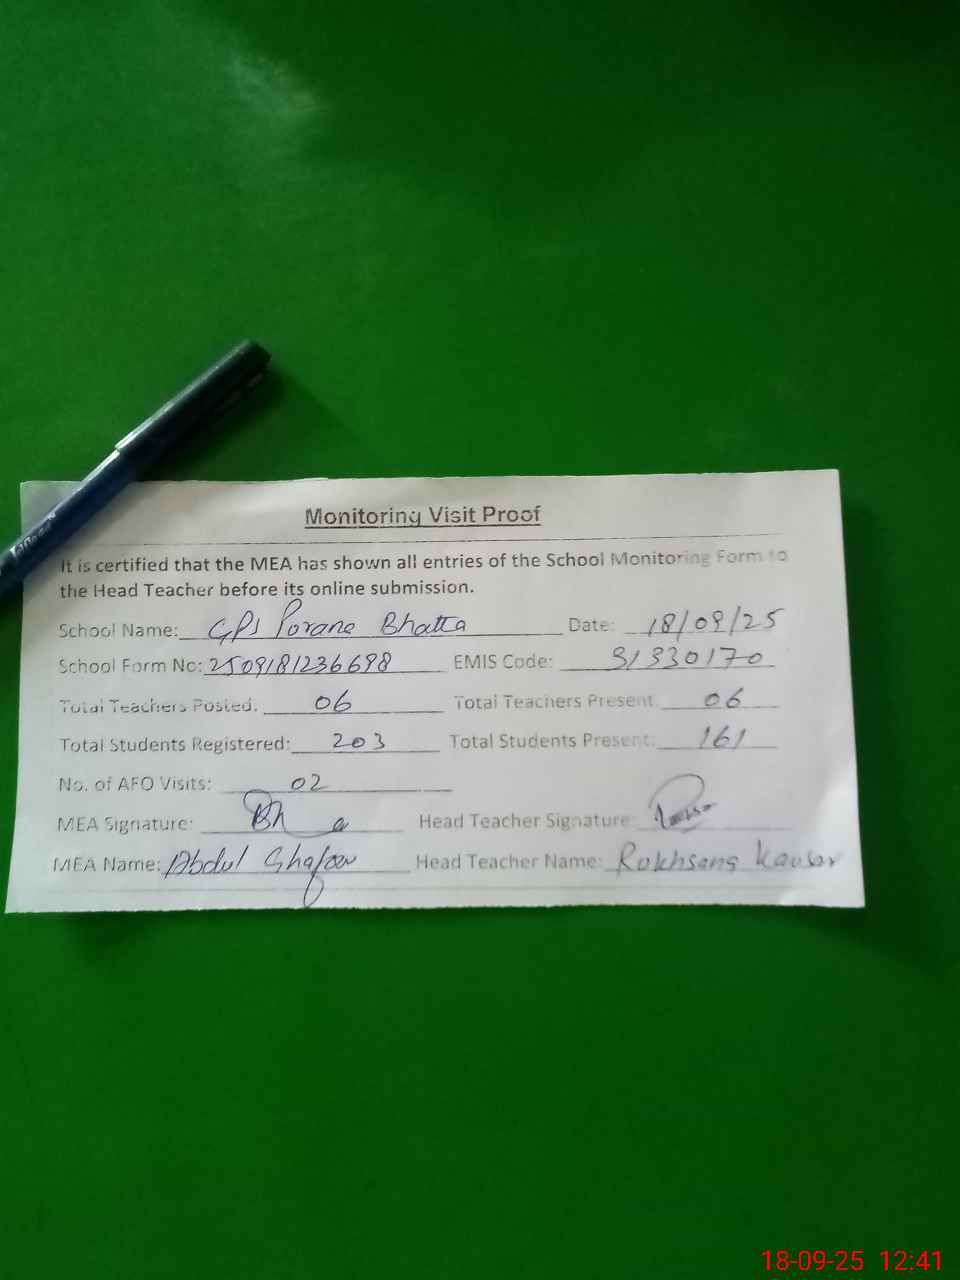 Monitoring Visit Proof
It is certified that the MEA has shown all entries of the School Monitoring Form to
the Head Teacher before its online submission.
School Name: GPS Porane Bhatta Date: 18/09/25
School Form No: 2509181236698 EMIS Code: 31330170
Total Teachers Posted: 06 Total Teachers Present: 06
Total Students Registered: 203 Total Students Present: 161
No. of AEO Visits: 02
MEA Signature: Head Teacher Signature:
MEA Name: Abdul Ghafoor Head Teacher Name: Rukhsana Kausar
18-09-25 12:41